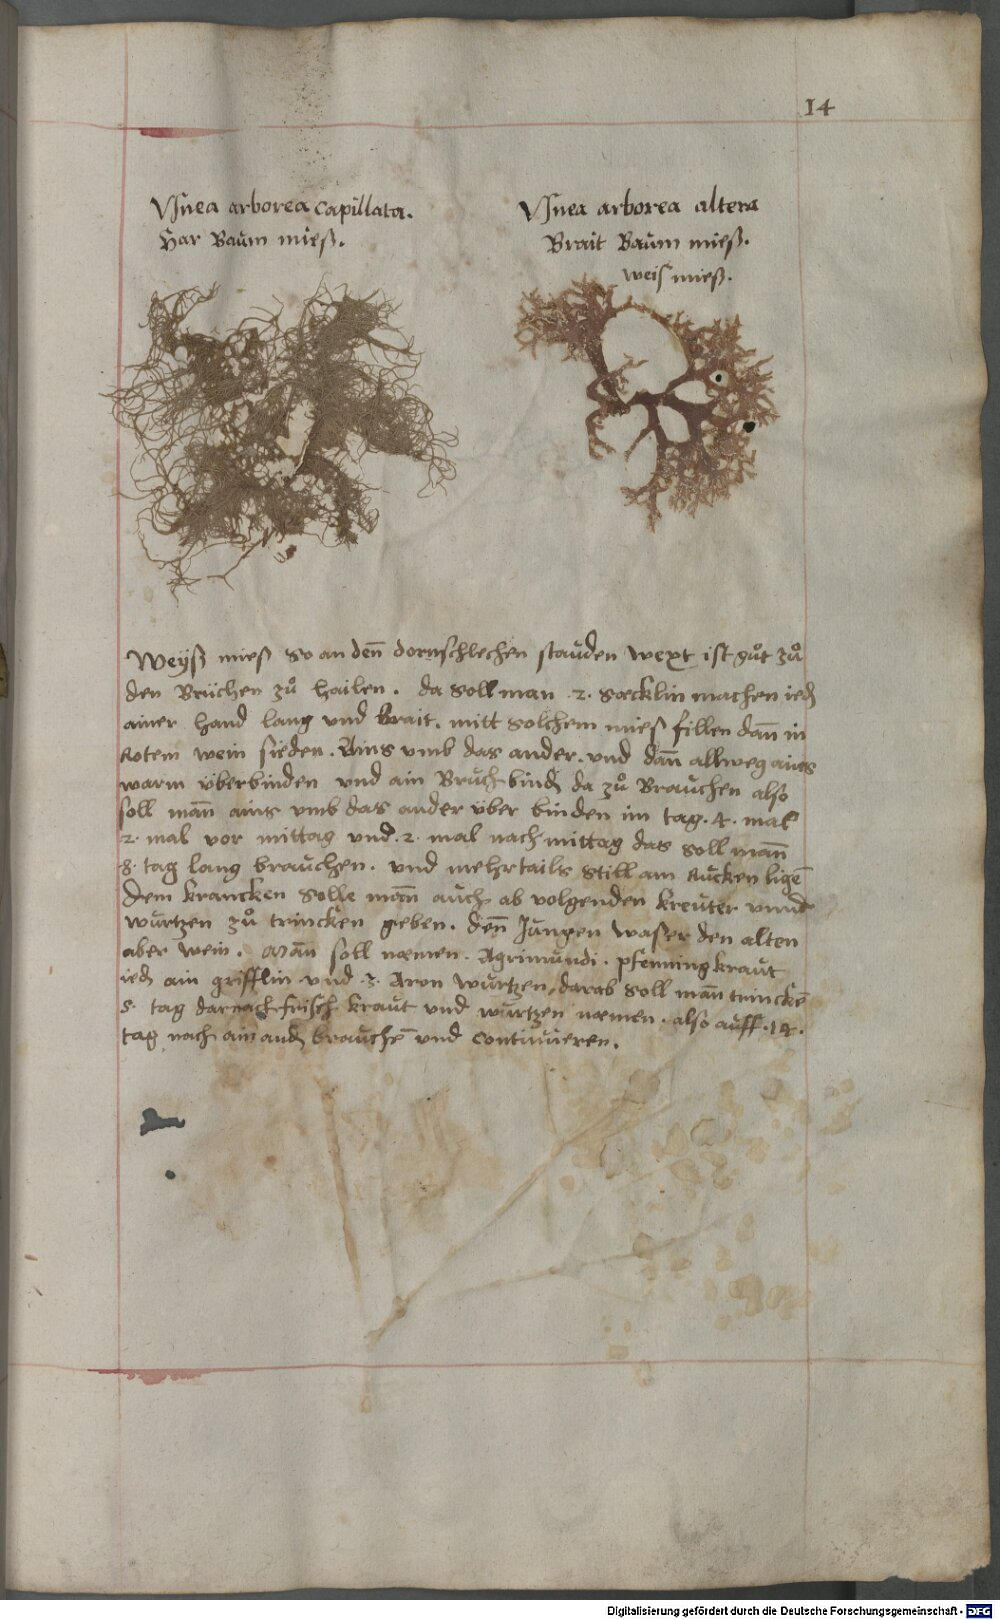 14
Vsnea arborea capillata.
Har Baum mieß.
Vsnea arborea altera
Brait Baum mieß.
weis mieß.
Weyß mieß so an denn dornschlechen stauden wext ist gůt zů
den Brüchen zů hailen. da soll man .2. secklin machen ied
ainer hand lang vnd brait. mitt solchem mieß fillen dañ in
Rotem wein sieden. Ains vmb das ander. vnd dañ allweg ains
warm überbinden vnd ain Bruchbind da zů Brauchen also
soll mañ ains vmb das ander über binden im tag .4. mal
2. mal vor mittag vnd .2. mal nach mittag das soll mañ
8. tag lang brauchen. vnd mehrtails still am Rucken ligē
dem krancken solle mañ auch ab volgenden kreuter vnnd
wurtzen zů trincken geben. denn Jungen waser den alten
aber wein. Mañ soll nemen. Agrimundi. pfenningkraut
ied ain grifflin vnd .3. Aron wurtzen, darab soll mañ trinckē
5. tag darnach frisch kraut vnd wurtzen nemen. also auff .14.
tag nach ain and brauchē vnd continuieren.
Digitalisierung gefördert durch die Deutsche Forschungsgemeinschaft - DFG